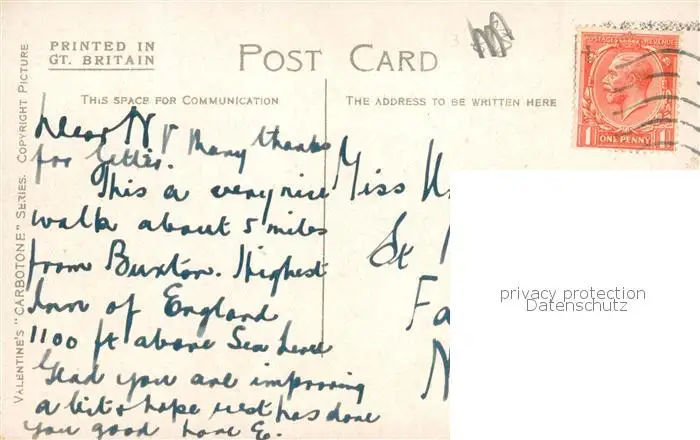 PRINTED IN
GT. BRITAIN
POST CARD
THIS SPACE FOR COMMUNICATION
THE ADDRESS TO BE WRITTEN HERE
VALENTINE'S "CARBOTONE" SERIES. COPYRIGHT PICTURE
POSTAGE REVENUE
1 ONE PENNY 1
Dear Many thanks
for letter.
This a very nice
walk about 5 miles
from Buxton. Highest
Inn of England
1100 ft above Sea Level
Glad you are improving
a bit & hope rest has done
you good Love E.
Miss
St
Fa
N
privacy protection
Datenschutz